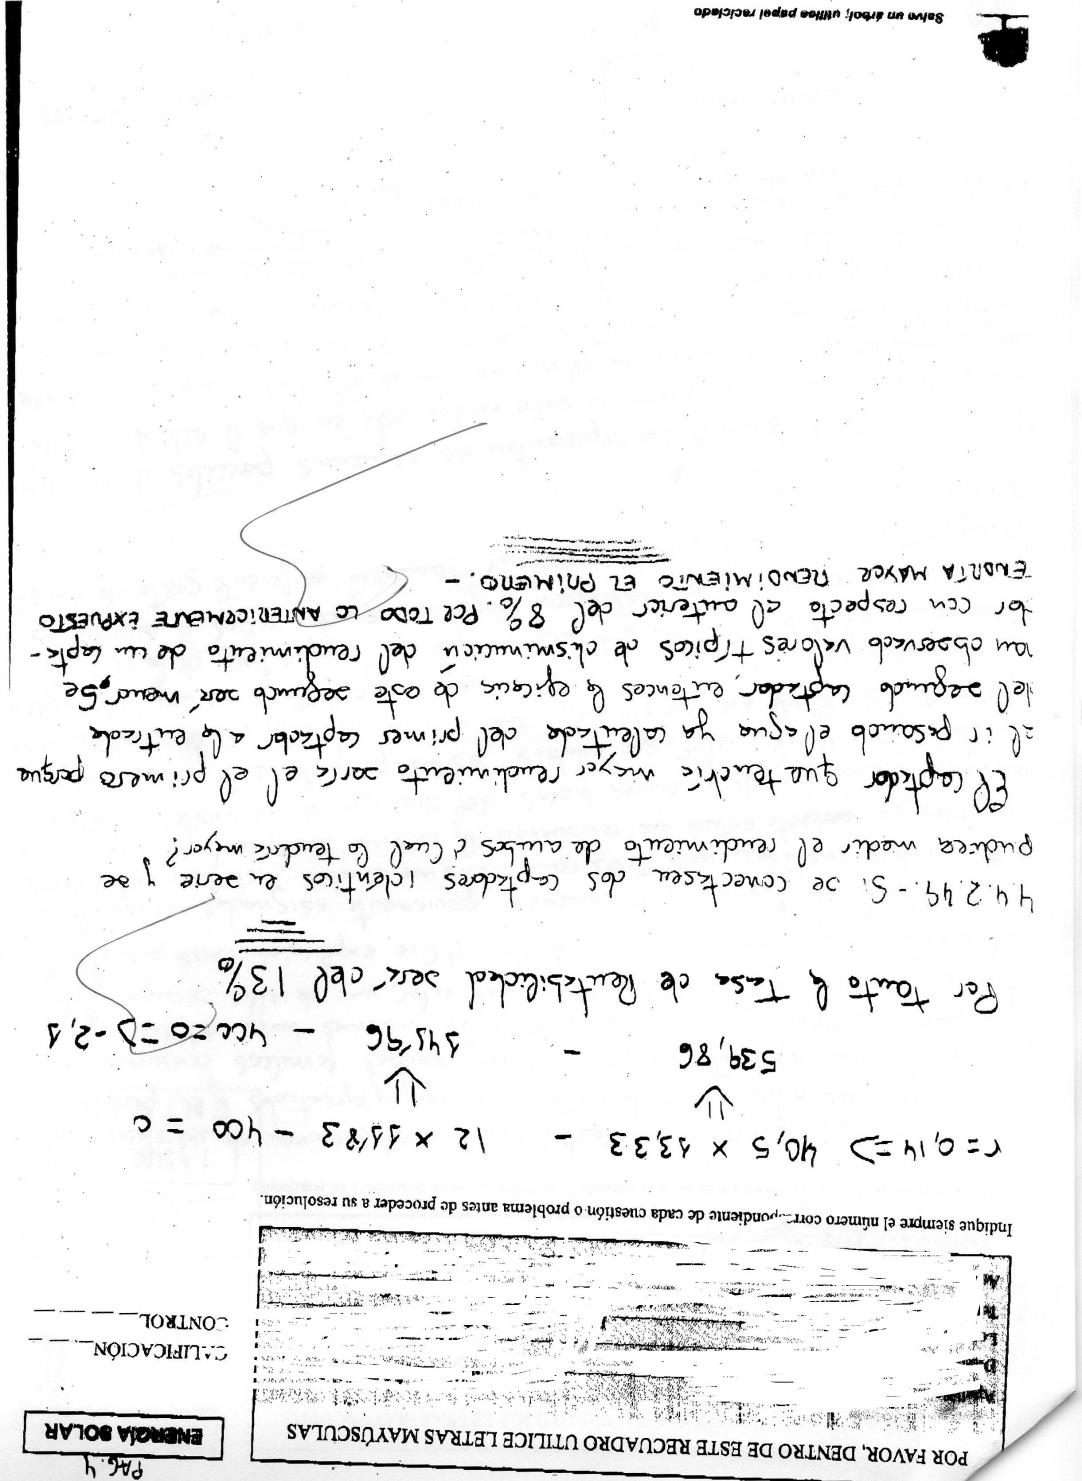 PAG. 4
ENERGÍA SOLAR
POR FAVOR, DENTRO DE ESTE RECUADRO UTILICE LETRAS MAYÚSCULAS
CALIFICACIÓN
CONTROL
Indique siempre el número correspondiente de cada cuestión o problema antes de proceder a su resolución.
r=0,14 => 40,5 × 13,33 - 12 × 11'83 - 400 = 0
539,86 - 141'96 - 400=0 => -2,1
Por tanto la Tasa de Rentabilidad será del 13%
4.4.2.49.- Si se conectasen dos captadores idénticos en serie y se
pudiera medir el rendimiento de ambos ¿Cual lo tendría mayor?
El captador que tendría mayor rendimiento sería el el primero porque
al ir pasando el agua ya calentada del primer captador a la entrada
del segundo captador, entonces la eficacia de este segundo será menor, Se
han observado valores típicos de disminución del rendimiento de un capta-
dor con respecto al anterior del 8%. POR TODO LO ANTERIORMENTE EXPUESTO
TENDRÍA MAYOR RENDIMIENTO EL PRIMERO.-
Salve un árbol; utilice papel reciclado